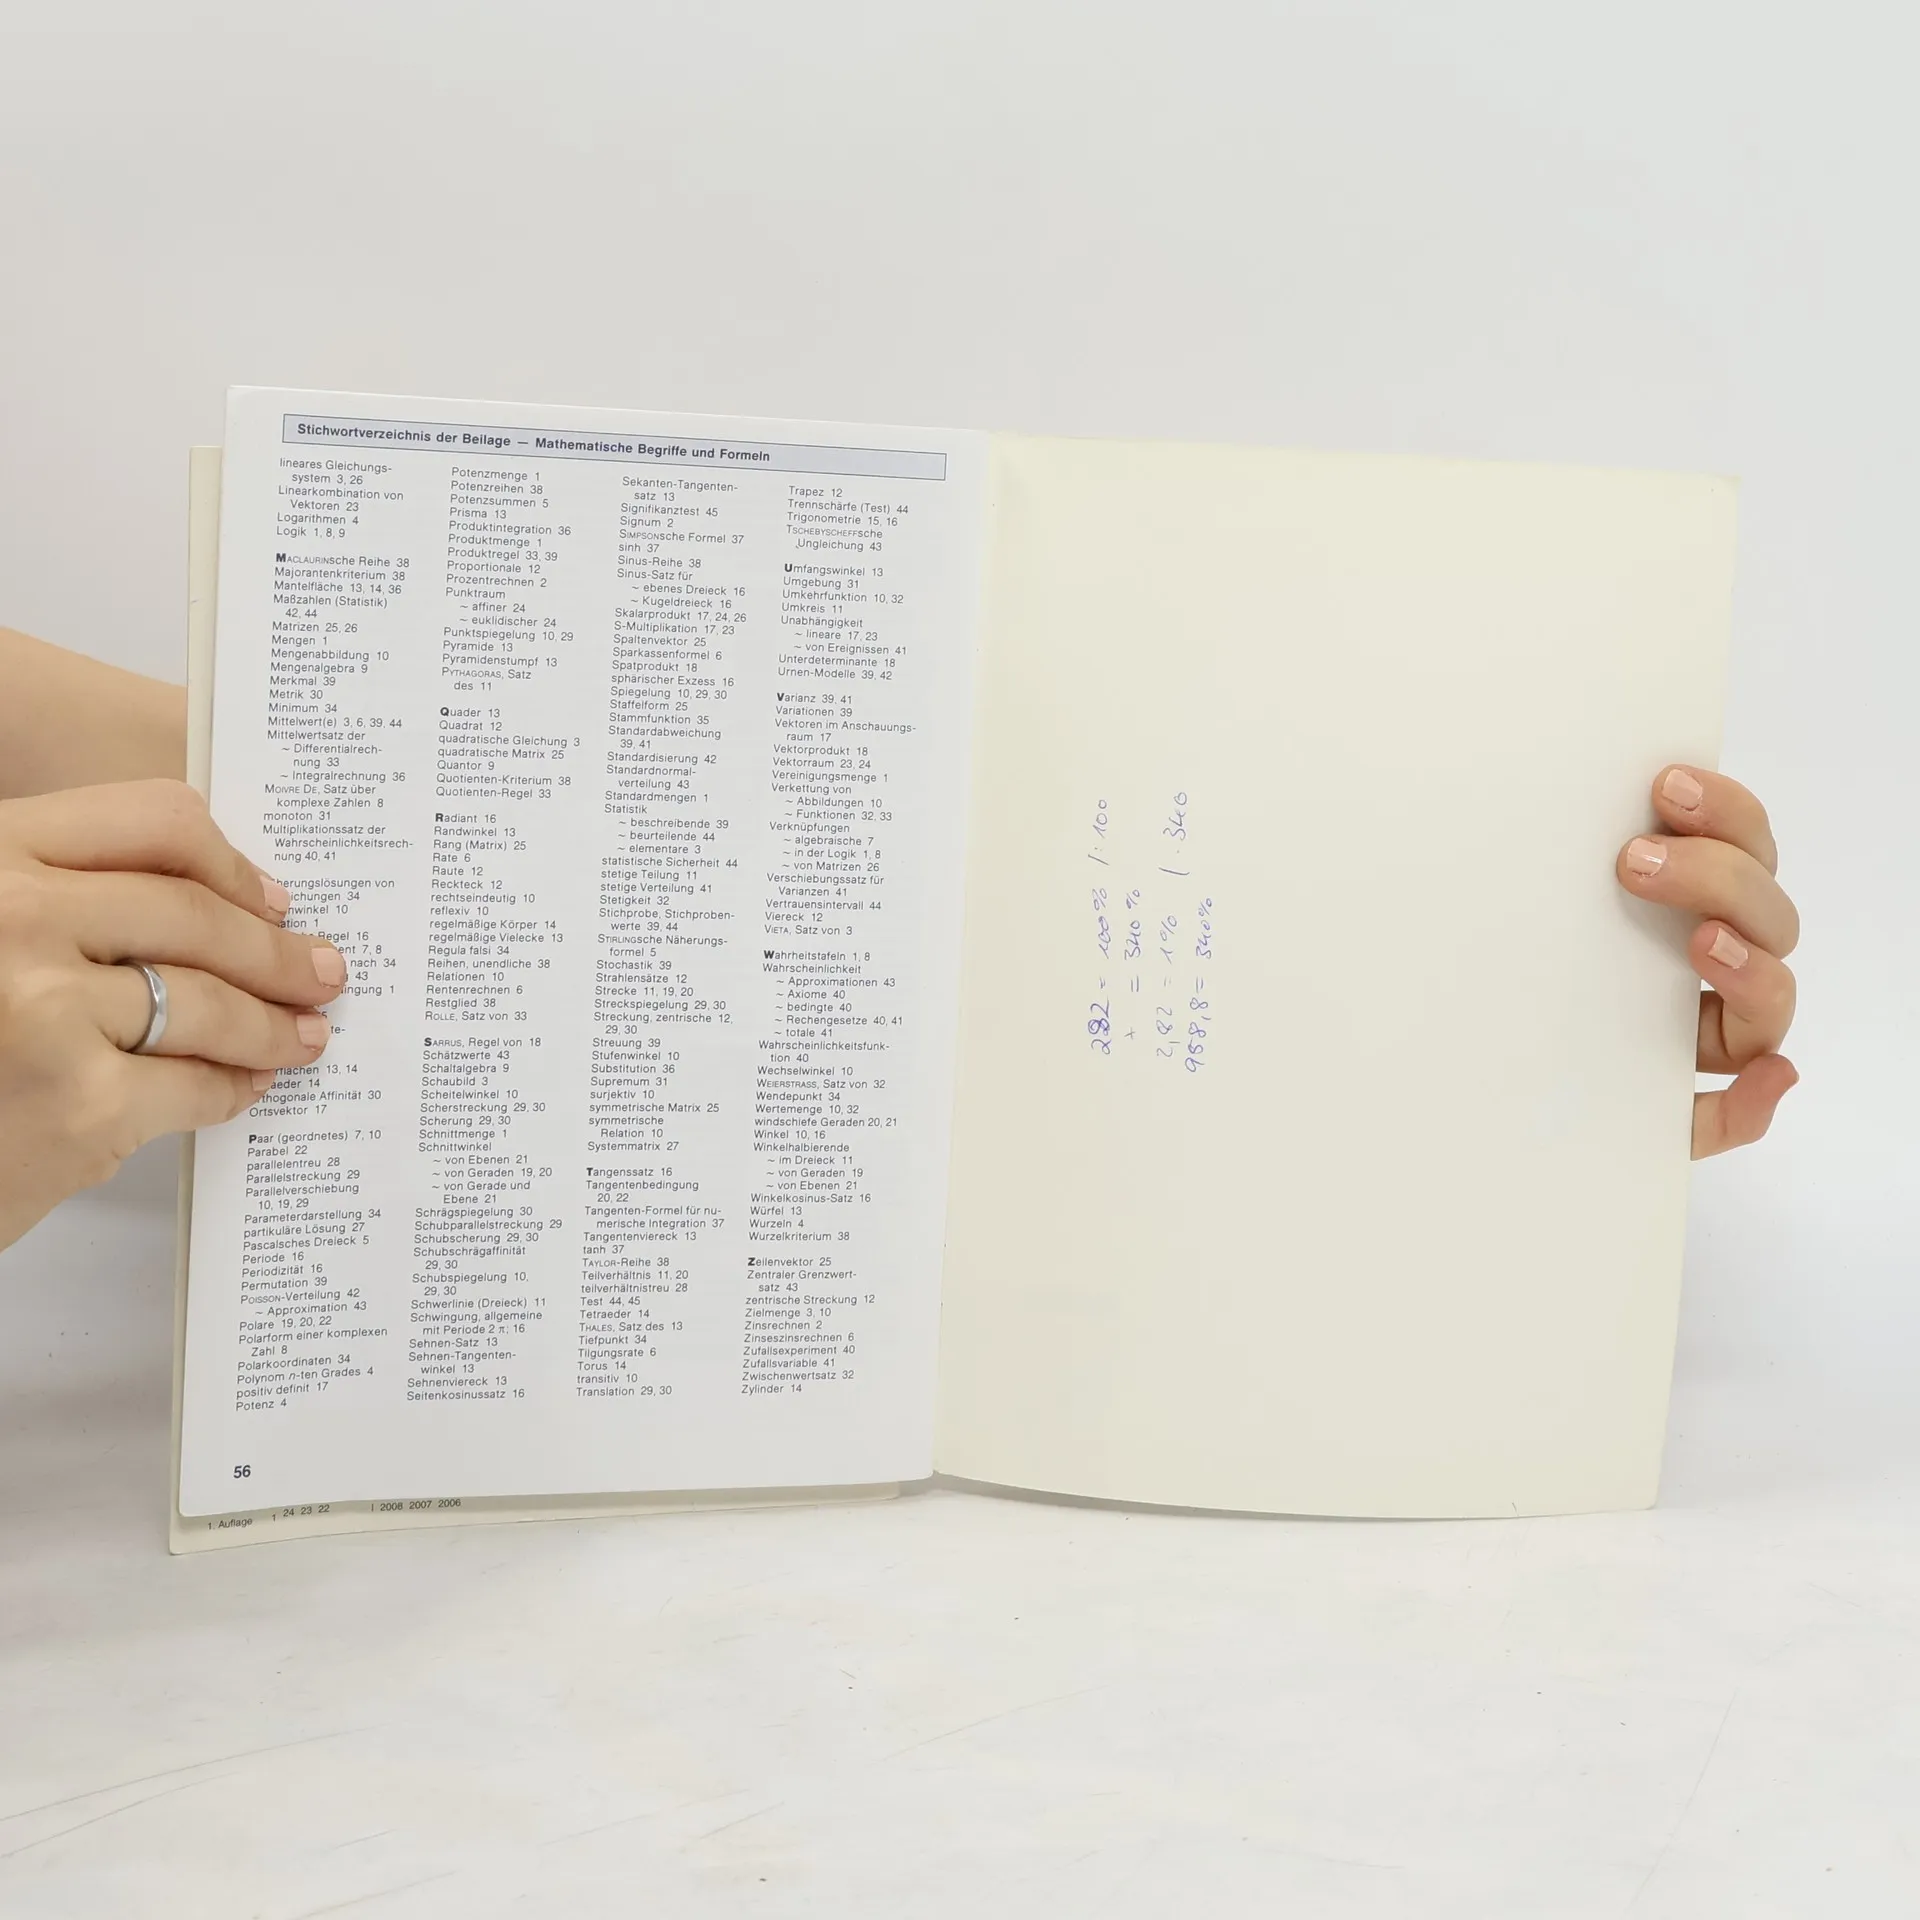 Stichwortverzeichnis der Beilage — Mathematische Begriffe und Formeln
lineares Gleichungs-
system 3, 26
Linearkombination von
Vektoren 23
Logarithmen 4
Logik 1, 8, 9
MACLAURINsche Reihe 38
Majorantenkriterium 38
Mantelfläche 13, 14, 36
Maßzahlen (Statistik)
42, 44
Matrizen 25, 26
Mengen 1
Mengenabbildung 10
Mengenalgebra 9
Merkmal 39
Metrik 30
Minimum 34
Mittelwert(e) 3, 6, 39, 44
Mittelwertsatz der
~ Differentialrech-
nung 33
~ Integralrechnung 36
MOIVRE DE, Satz über
komplexe Zahlen 8
monoton 31
Multiplikationssatz der
Wahrscheinlichkeitsrech-
nung 40, 41
herungslösungen von
ichungen 34
nwinkel 10
ation 1
Regel 16
ent 7, 8
nach 34
43
ingung 1
5
te-
flächen 13, 14
aeder 14
rthogonale Affinität 30
Ortsvektor 17
Paar (geordnetes) 7, 10
Parabel 22
parallelentreu 28
Parallelstreckung 29
Parallelverschiebung
10, 19, 29
Parameterdarstellung 34
partikuläre Lösung 27
Pascalsches Dreieck 5
Periode 16
Periodizität 16
Permutation 39
POISSON-Verteilung 42
~ Approximation 43
Polare 19, 20, 22
Polarform einer komplexen
Zahl 8
Polarkoordinaten 34
Polynom n-ten Grades 4
positiv definit 17
Potenz 4
Potenzmenge 1
Potenzreihen 38
Potenzsummen 5
Prisma 13
Produktintegration 36
Produktmenge 1
Produktregel 33, 39
Proportionale 12
Prozentrechnen 2
Punktraum
~ affiner 24
~ euklidischer 24
Punktspiegelung 10, 29
Pyramide 13
Pyramidenstumpf 13
PYTHAGORAS, Satz
des 11
Quader 13
Quadrat 12
quadratische Gleichung 3
quadratische Matrix 25
Quantor 9
Quotienten-Kriterium 38
Quotienten-Regel 33
Radiant 16
Randwinkel 13
Rang (Matrix) 25
Rate 6
Raute 12
Reckteck 12
rechtseindeutig 10
reflexiv 10
regelmäßige Körper 14
regelmäßige Vielecke 13
Regula falsi 34
Reihen, unendliche 38
Relationen 10
Rentenrechnen 6
Restglied 38
ROLLE, Satz von 33
SARRUS, Regel von 18
Schätzwerte 43
Schaltalgebra 9
Schaubild 3
Scheitelwinkel 10
Scherstreckung 29, 30
Scherung 29, 30
Schnittmenge 1
Schnittwinkel
~ von Ebenen 21
~ von Geraden 19, 20
~ von Gerade und
Ebene 21
Schrägspiegelung 30
Schubparallelstreckung 29
Schubscherung 29, 30
Schubschrägaffinität
29, 30
Schubspiegelung 10,
29, 30
Schwerlinie (Dreieck) 11
Schwingung, allgemeine
mit Periode 2 π; 16
Sehnen-Satz 13
Sehnen-Tangenten-
winkel 13
Sehnenviereck 13
Seitenkosinussatz 16
Sekanten-Tangenten-
satz 13
Signifikanztest 45
Signum 2
SIMPSONsche Formel 37
sinh 37
Sinus-Reihe 38
Sinus-Satz für
~ ebenes Dreieck 16
~ Kugeldreieck 16
Skalarprodukt 17, 24, 26
S-Multiplikation 17, 23
Spaltenvektor 25
Sparkassenformel 6
Spatprodukt 18
sphärischer Exzess 16
Spiegelung 10, 29, 30
Staffelform 25
Stammfunktion 35
Standardabweichung
39, 41
Standardisierung 42
Standardnormal-
verteilung 43
Standardmengen 1
Statistik
~ beschreibende 39
~ beurteilende 44
~ elementare 3
statistische Sicherheit 44
stetige Teilung 11
stetige Verteilung 41
Stetigkeit 32
Stichprobe, Stichproben-
werte 39, 44
STIRLINGsche Näherungs-
formel 5
Stochastik 39
Strahlensätze 12
Strecke 11, 19, 20
Streckspiegelung 29, 30
Streckung, zentrische 12,
29, 30
Streuung 39
Stufenwinkel 10
Substitution 36
Supremum 31
surjektiv 10
symmetrische Matrix 25
symmetrische
Relation 10
Systemmatrix 27
Tangenssatz 16
Tangentenbedingung
20, 22
Tangenten-Formel für nu-
merische Integration 37
Tangentenviereck 13
tanh 37
TAYLOR-Reihe 38
Teilverhältnis 11, 20
teilverhältnistreu 28
Test 44, 45
Tetraeder 14
THALES, Satz des 13
Tiefpunkt 34
Tilgungsrate 6
Torus 14
transitiv 10
Translation 29, 30
Trapez 12
Trennschärfe (Test) 44
Trigonometrie 15, 16
TSCHEBYSCHEFFsche
Ungleichung 43
Umfangswinkel 13
Umgebung 31
Umkehrfunktion 10, 32
Umkreis 11
Unabhängigkeit
~ lineare 17, 23
~ von Ereignissen 41
Unterdeterminante 18
Urnen-Modelle 39, 42
Varianz 39, 41
Variationen 39
Vektoren im Anschauungs-
raum 17
Vektorprodukt 18
Vektorraum 23, 24
Vereinigungsmenge 1
Verkettung von
~ Abbildungen 10
~ Funktionen 32, 33
Verknüpfungen
~ algebraische 7
~ in der Logik 1, 8
~ von Matrizen 26
Verschiebungssatz für
Varianzen 41
Vertrauensintervall 44
Viereck 12
VIETA, Satz von 3
Wahrheitstafeln 1, 8
Wahrscheinlichkeit
~ Approximationen 43
~ Axiome 40
~ bedingte 40
~ Rechengesetze 40, 41
~ totale 41
Wahrscheinlichkeitsfunk-
tion 40
Wechselwinkel 10
WEIERSTRASS, Satz von 32
Wendepunkt 34
Wertemenge 10, 32
windschiefe Geraden 20, 21
Winkel 10, 16
Winkelhalbierende
~ im Dreieck 11
~ von Geraden 19
~ von Ebenen 21
Winkelkosinus-Satz 16
Würfel 13
Wurzeln 4
Wurzelkriterium 38
Zeilenvektor 25
Zentraler Grenzwert-
satz 43
zentrische Streckung 12
Zielmenge 3, 10
Zinsrechnen 2
Zinseszinsrechnen 6
Zufallsexperiment 40
Zufallsvariable 41
Zwischenwertsatz 32
Zylinder 14
56
1. Auflage 1 24 23 22 | 2008 2007 2006
282 = 100% /:100
x = 340%
2,82 = 1% /·340
958,8 = 340%